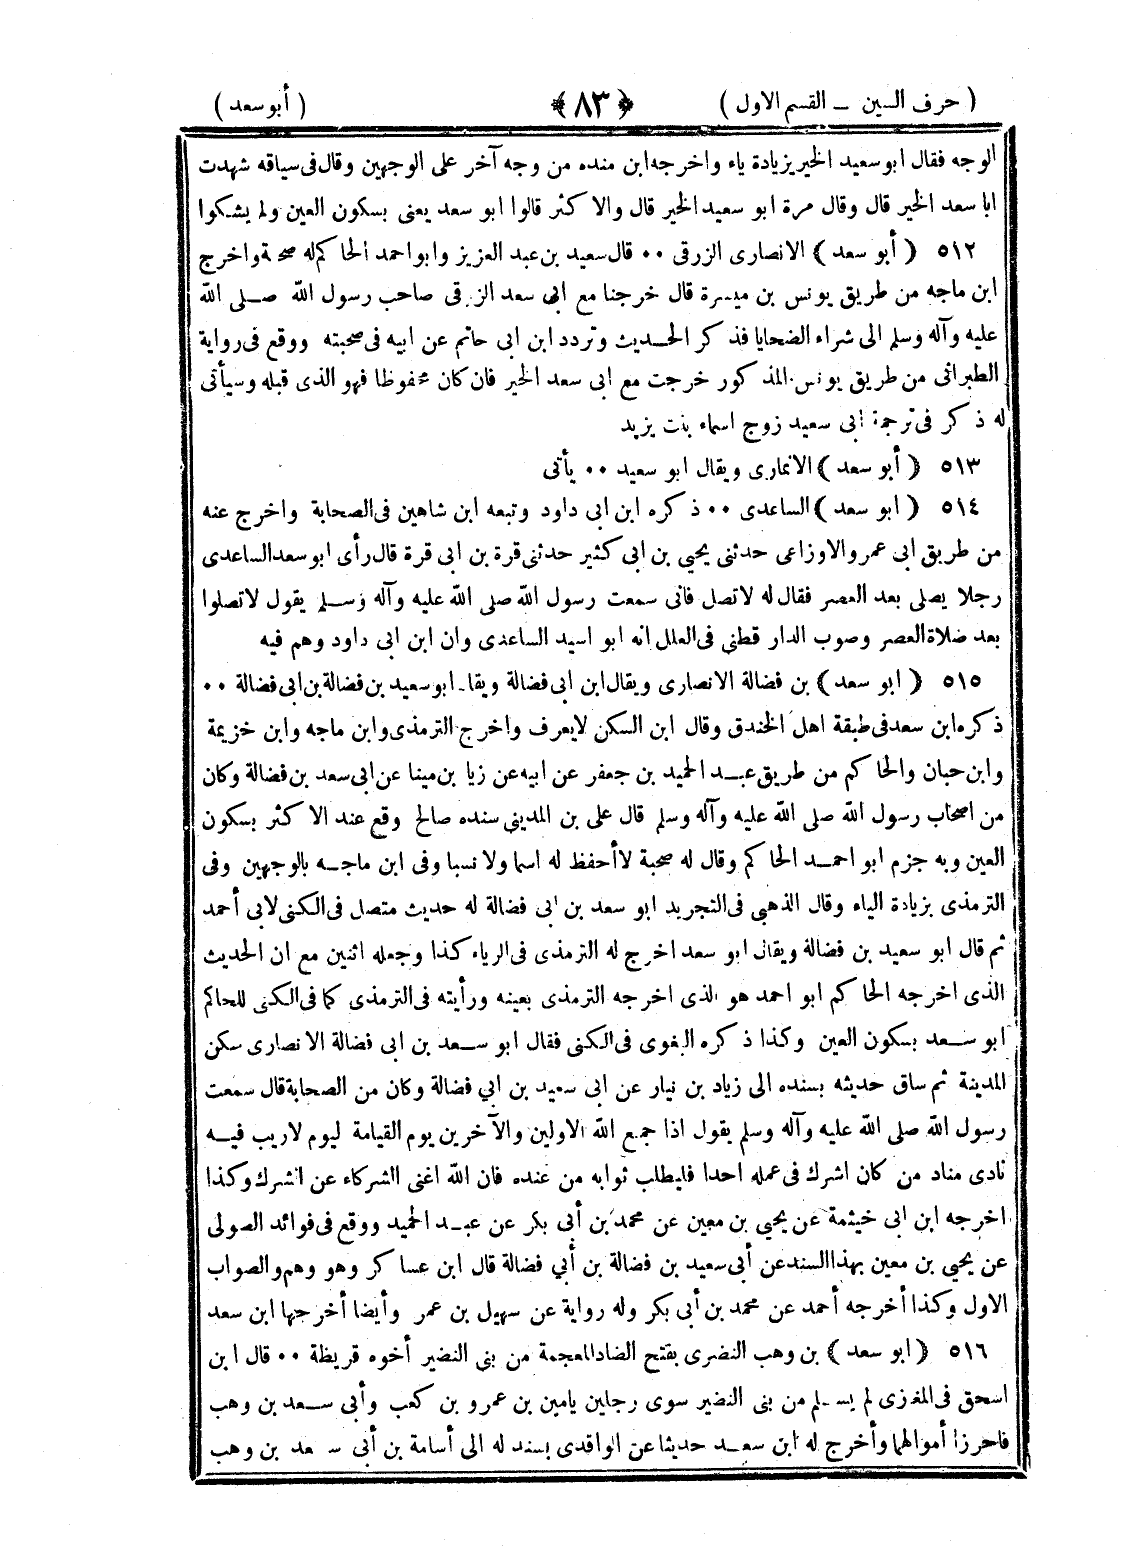 ( حرف السين ــ القسم الاول ) ﴿ ٨٣ ﴾ ( أبو سعد )
الوجه فقال ابو سعيد الخير بزيادة ياء واخرجه ابن منده من وجه آخر على الوجهين وقال فى سياقه شهدت
ابا سعد الخير قال وقال مرة ابو سعيد الخير قال والاكثر قالوا ابو سعد يعنى بسكون العين ولم يشكوا
٥١٢ ( أبو سعد ) الانصارى الزرقى ٠٠ قال سعيد بن عبد العزيز وابو احمد الحاكم له صحبة واخرج
ابن ماجه من طريق يونس بن ميسرة قال خرجنا مع ابى سعد الزرقى صاحب رسول الله صلى الله
عليه وآله وسلم الى شراء الضحايا فذكر الحديث وتردد ابن ابى حاتم عن ابيه فى صحبته ووقع فى رواية
الطبرانى من طريق يونس المذكور خرجت مع ابى سعد الخير فان كان محفوظا فهو الذى قبله وسيأتى
له ذكر فى ترجمة ابى سعيد زوج اسماء بنت يزيد
٥١٣ ( أبو سعد ) الانمارى ويقال ابو سعيد ٠٠ يأتى
٥١٤ ( ابو سعد ) الساعدى ٠٠ ذكره ابن ابى داود وتبعه ابن شاهين فى الصحابة واخرج عنه
من طريق ابى عمرو الاوزاعى حدثنى يحيى بن ابى كثير حدثنى قرة بن ابى قرة قال رأى ابو سعد الساعدى
رجلا يصلى بعد العصر فقال له لاتصل فانى سمعت رسول الله صلى الله عليه وآله وسلم يقول لاتصلوا
بعد صلاة العصر وصوب الدار قطنى فى العلل انه ابو اسيد الساعدى وان ابن ابى داود وهم فيه
٥١٥ ( ابو سعد ) بن فضالة الانصارى ويقال ابن ابى فضالة ويقال ابو سعيد بن فضالة بن ابى فضالة ٠٠
ذكره ابن سعد فى طبقة اهل الخندق وقال ابن السكن لايعرف واخرج الترمذى وابن ماجه وابن خزيمة
وابن حبان والحاكم من طريق عبد الحميد بن جعفر عن ابيه عن زيا بن مينا عن ابى سعد بن فضالة وكان
من اصحاب رسول الله صلى الله عليه وآله وسلم قال على بن المدينى سنده صالح وقع عند الاكثر بسكون
العين وبه جزم ابو احمد الحاكم وقال له صحبة لاأحفظ له اسما ولا نسبا وفى ابن ماجه بالوجهين وفى
الترمذى بزيادة الياء وقال الذهبى فى التجريد ابو سعد بن ابى فضالة له حديث متصل فى الكنى لابى أحمد
ثم قال ابو سعيد بن فضالة ويقال ابو سعد اخرج له الترمذى فى الرياء كذا وجعله اثنين مع ان الحديث
الذى اخرجه الحاكم ابو احمد هو الذى اخرجه الترمذى بعينه ورأيته فى الترمذى كما فى الكنى للحاكم
ابو سعد بسكون العين وكذا ذكره البغوى فى الكنى فقال ابو سعد بن ابى فضالة الانصارى سكن
المدينة ثم ساق حديثه بسنده الى زياد بن نيار عن ابى سعيد بن ابي فضالة وكان من الصحابة قال سمعت
رسول الله صلى الله عليه وآله وسلم يقول اذا جمع الله الاولين والآخرين يوم القيامة ليوم لاريب فيه
نادى مناد من كان اشرك فى عمله احدا فليطلب ثوابه من عنده فان الله اغنى الشركاء عن الشرك وكذا
اخرجه ابن ابى خيثمة عن يحيى بن معين عن محمد بن أبى بكر عن عبد الحميد ووقع فى فوائد الصولى
عن يحيى بن معين بهذا السند عن أبى سعيد بن فضالة بن أبي فضالة قال ابن عساكر وهو وهم والصواب
الاول وكذا أخرجه أحمد عن محمد بن أبى بكر وله رواية عن سهيل بن عمر وأيضا أخرجها ابن سعد
٥١٦ ( ابو سعد ) بن وهب النضرى بفتح الضاد المعجمة من بنى النضير أخوه قريظة ٠٠ قال ابن
اسحق فى المغزى لم يسلم من بنى النضير سوى رجلين يامين بن عمرو بن كعب وأبى سعد بن وهب
فاحرزا أموالهما وأخرج له ابن سعد حديثا عن الواقدى بسند له الى أسامة بن أبى سعد بن وهب